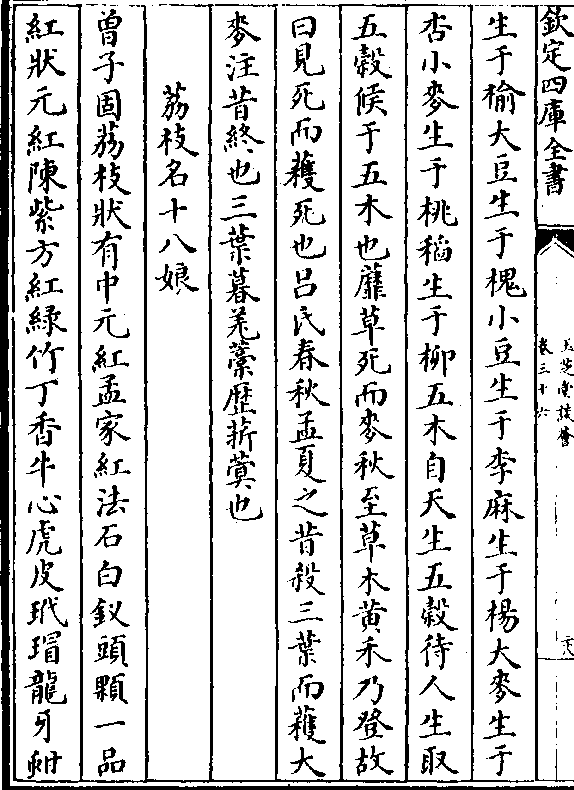 欽定四庫全書
玉芝堂談薈
卷三十六
生于榆大豆生于槐小豆生于李麻生于楊大麥生于
杏小麥生于桃稻生于柳五木自天生五榖待人生取
五榖候于五木也蘼草死而麥秋至草木黃禾乃登故
曰見死而穫死也吕氏春秋孟夏之昔殺三葉而穫大
麥注昔終也三葉暮羌薺歴菥蓂也
荔枝名十八娘
曽子固荔枝狀有中元紅孟家紅法石白釵頭顆一品
紅狀元紅陳紫方紅緑竹丁香牛心虎皮玳瑁龍牙蚶